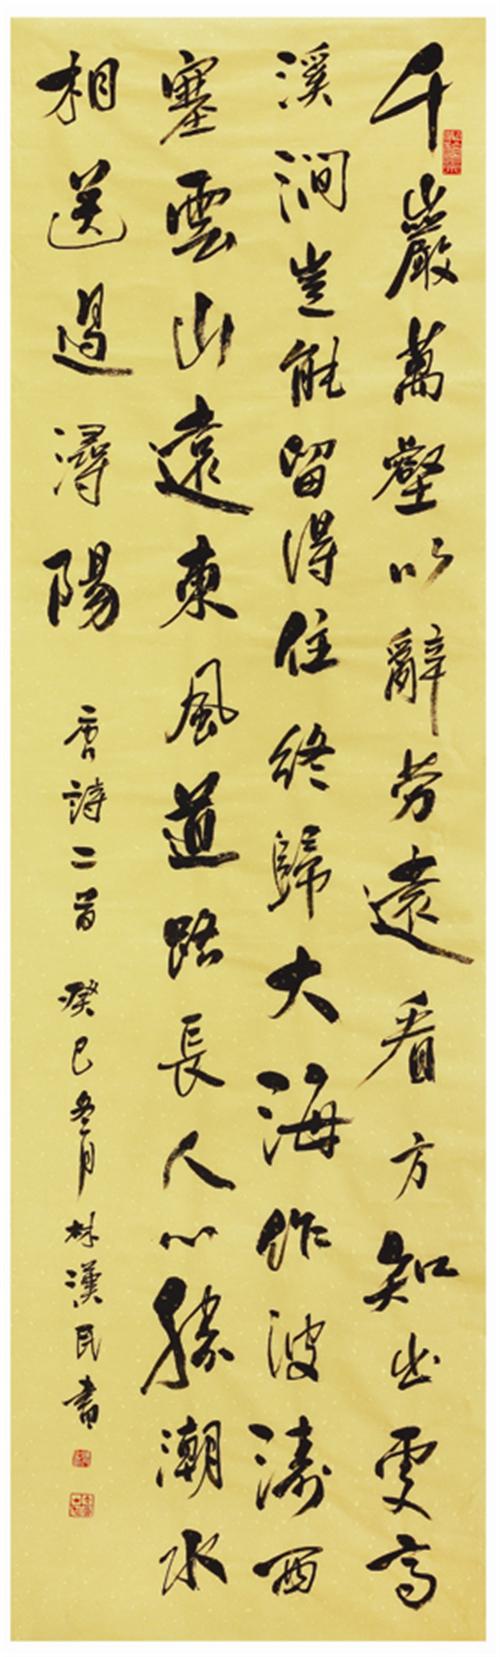 千巖萬壑以辭勞遠看方知出處高
溪澗豈能留得住終歸大海作波濤西
塞雲山遠東風道路長人心勝潮水
相送過潯陽 唐詩二首 癸巳冬月 林漢民書